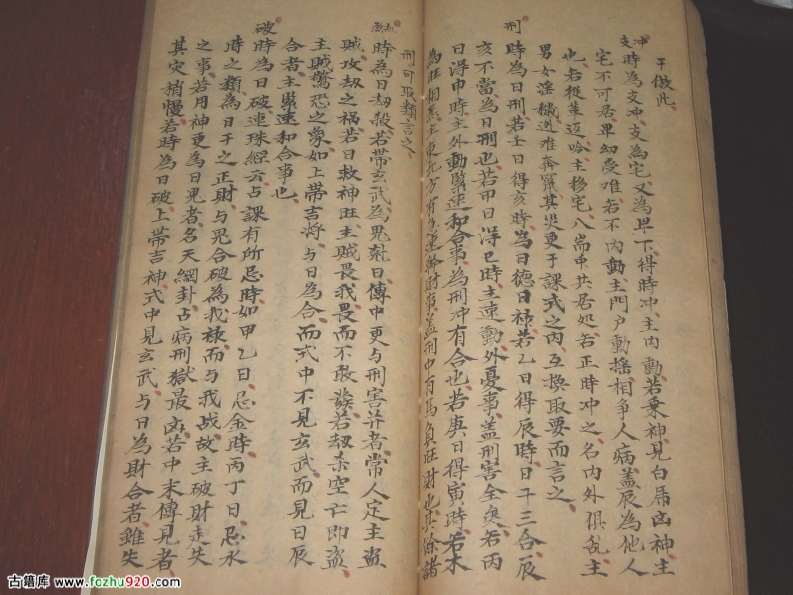 干倣此
支冲
時為支冲支為宅又為卑下得時冲主内動若乗神見白虎凶神主
宅不可居卑幼受难若不内動主門户動搖相争人病盖辰為他人
也若從革迈吟主移宅八耑中共居处若正時冲之名内外俱乱主
男女淫穢逃难奔竄其災更于課式之内互換取要而言之
刑
時為日刑若壬日得亥時為日德日禄若乙日得辰時日干三合辰
亥不當為日刑也若甲日得巳時主速動外憂事盖刑害全矣若丙
日得申時主外動緊速和合事為刑冲有合也若庚日得寅時若木
為旺相氣主東北方有急速幹財事盖刑中有馬負旺財也其餘諸
刑可取類言之
劫煞
時為日劫殺若帶玄武為鬼尅日傳中更与刑害并者常人定主盗
賊攻劫之祸若日救神旺主賊畏我畏而不敢發若劫杀空亡即盗
主賊驚恐之蒙如上帶吉将与日為合而式中不見玄武而見日辰
合者主緊速和合事也
破
時為日破連珠經云占課有所忌時如甲乙日忌金時丙丁日忌水
時之類為日干之正財与鬼合破為我禄而与我战故主破財走失
之事若用神更為日鬼者名天網卦占病刑獄最凶若中末傳見者
其灾稍慢若時為日破上帶吉神式中見玄武与日為財合者雖失
古籍库 www.fczhu920.com